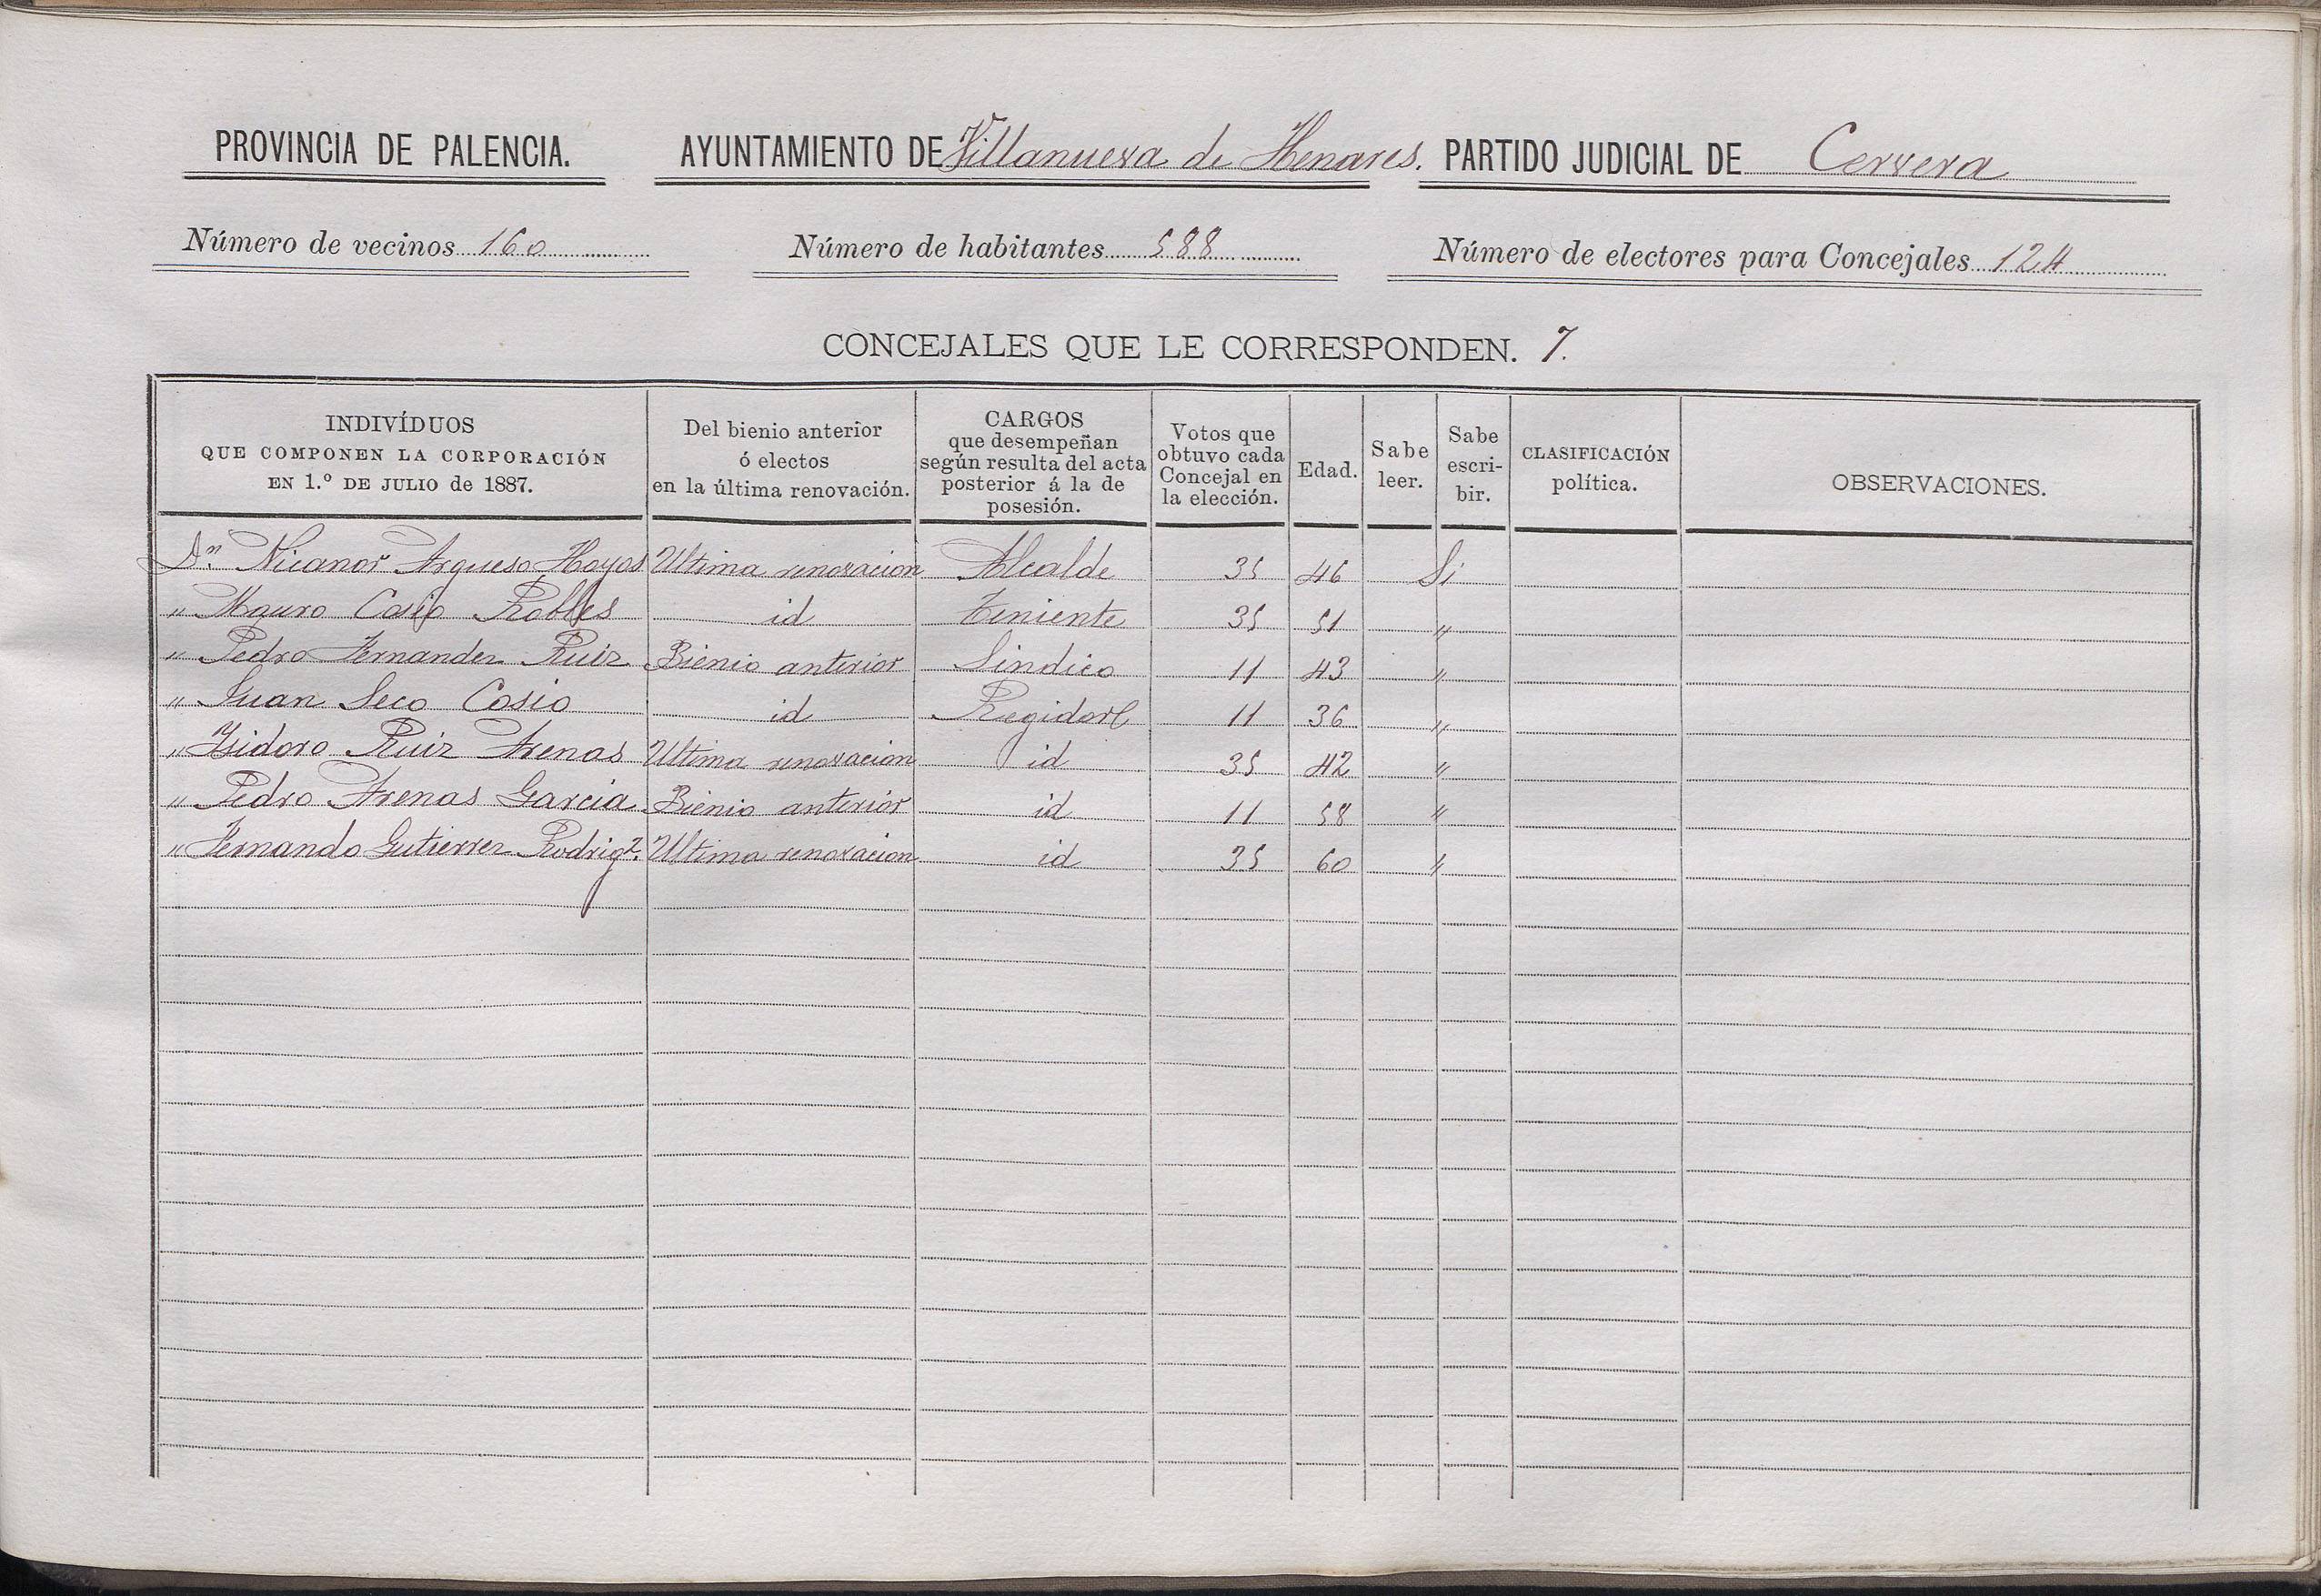 PROVINCIA DE PALENCIA. AYUNTAMIENTO DE Villanueva de Henares. PARTIDO JUDICIAL DE Cervera
Número de vecinos 160 Número de habitantes 588 Número de electores para Concejales 124
CONCEJALES QUE LE CORRESPONDEN. 7.
INDIVÍDUOS
QUE COMPONEN LA CORPORACIÓN
EN 1.º DE JULIO de 1887.
Del bienio anterior
ó electos
en la última renovación.
CARGOS
que desempeñan
según resulta del acta
posterior á la de
posesión.
Votos que
obtuvo cada
Concejal en
la elección.
Edad.
Sabe
leer.
Sabe
escri-
bir.
CLASIFICACIÓN
política.
OBSERVACIONES.
Dn. Nicanor Argueso Hoyos Ultima renovacion Alcalde 35 46 Si
" Mauro Cosio Robles id Teniente 35 51 "
" Pedro Fernandez Ruiz Bienio anterior Sindico 11 43 "
" Juan Seco Cosio id Regidor 11 36 "
" Isidoro Ruiz Arenas Ultima renovacion id 35 42 "
" Pedro Arenas Garcia Bienio anterior id 11 58 "
" Fernando Gutierrez Rodrigz. Ultima renovacion id 35 60 "